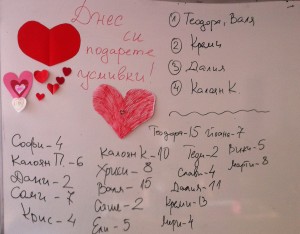 Днес
си
подарете
усмивки!
① Теодора, Валя
② Креми
③ Далия
④ Калоян К.
Софи - 4
Калоян П. - 6
Дани - 2
Сани - 7
Крис - 4
Калоян К - 10
Хриси - 8
Валя - 15
Саше - 2
Ели - 5
Теодора - 15
Теди - 2
Слави - 4
Далия - 11
Креми - 13
Мери - 4
Йоана - 7
Вики - 5
Марти - 8